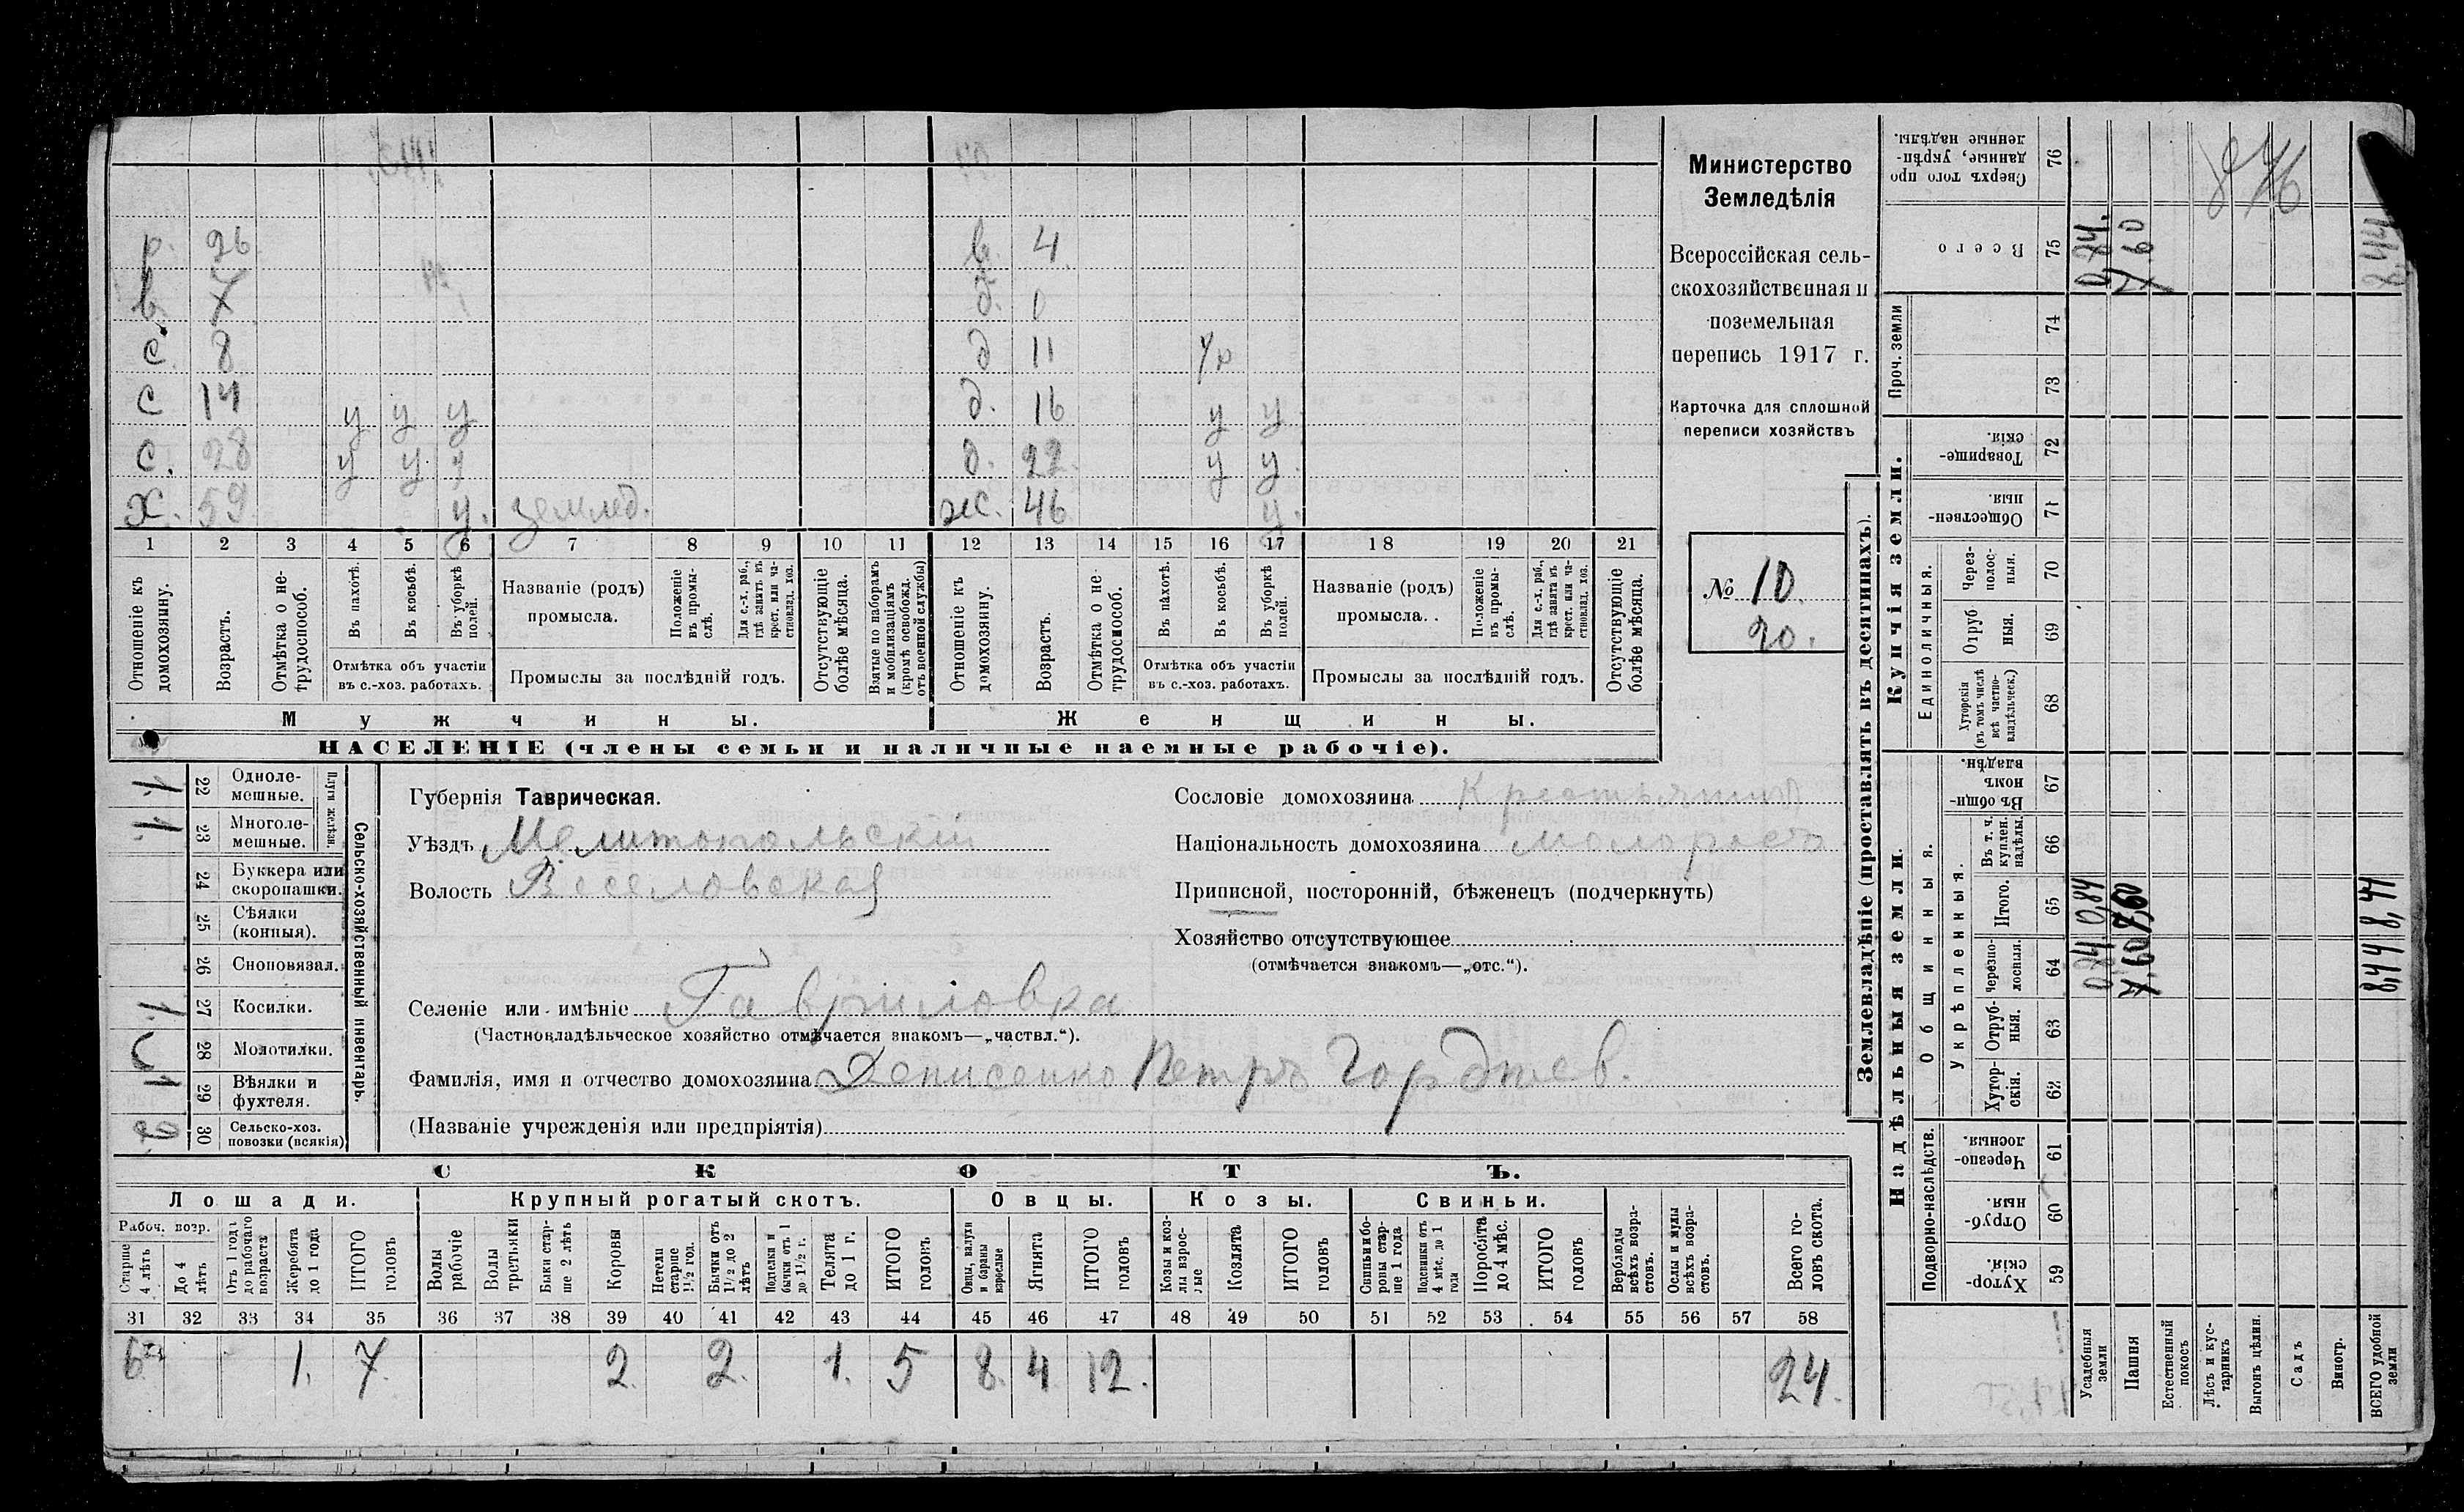 р. 26 в. 4
в. 7 д. 0
с. 8 д 11 у
с 14 у у у д. 16 у у
с. 28 у у у д. 22. у у.
х. 59 у. землед. ж. 46 у.
1 2 3 4 5 6 7 8 9 10 11 12 13 14 15 16 17 18 19 20 21
Отношеніе къ домохозяину.
Возрастъ.
Отмѣтка о не-трудоспособ.
Въ пахотѣ.
Въ косьбѣ.
Въ уборкѣ полей.
Отмѣтка объ участіи
въ с.-хоз. работахъ.
Названіе (родъ)
промысла.
Положеніе въ промы-слѣ.
Для с.-х. раб., гдѣ занятъ въ крест. или ча-стновлад. хоз.
Промыслы за послѣдній годъ.
Отсутствующіе болѣе мѣсяца.
Взятые по наборамъ и мобилизаціямъ (кромѣ освобожд. отъ военной службы)
Отношеніе къ домохозяину.
Возрастъ.
Отмѣтка о не трудоспособ.
Въ пахотѣ.
Въ косьбѣ.
Въ уборкѣ полей.
Отмѣтка объ участіи
въ с.-хоз. работахъ.
Названіе (родъ)
промысла..
Положеніе въ промы-слѣ.
Для с.-х. раб., гдѣ занята въ крест. или ча-стновлад. хоз.
Промыслы за послѣдній годъ.
Отсутствующіе болѣе мѣсяца.
Мужчины. Женщины.
НАСЕЛЕНІЕ (члены семьи и наличные наемные рабочіе).
Министерство
Земледѣлія
Всероссійская сель-
скохозяйственная и
поземельная
перепись 1917 г.
Карточка для сплошной
переписи хозяйствъ
№ 10.
20.
Сельско-хозяйственный инвентарь.
Плуги желѣзн.
1. 22 Одноле-мешные.
1. 23 Многоле-мешные.
24 Буккера или скоропашки.
25 Сѣялки (конныя).
26 Сноповязал.
1. 27 Косилки.
28 Молотилки.
1 29 Вѣялки и фухтеля.
2 30 Сельско-хоз. повозки (всякія)
Губернія Таврическая.
Уѣздъ Мелитопольскій
Волость Веселовская
Селеніе или имѣніе Гавриловка
(Частновладѣльческое хозяйство отмѣчается знакомъ—„частвл.“).
Фамилія, имя и отчество домохозяина Денисенко Петръ Гордѣев.
(Названіе учрежденія или предпріятія)
Сословіе домохозяина Крестьянинъ
Національность домохозяина малороссъ
Приписной, посторонній, бѣженецъ (подчеркнуть)
Хозяйство отсутствующее
(отмѣчается знакомъ—„отс.“).
СКОТЪ.
Лошади. Крупный рогатый скотъ. Овцы. Козы. Свиньи.
Рабоч. возр.
Старше 4 лѣтъ
До 4 лѣтъ
Отъ 1 года до рабочаго возраста
Жеребята до 1 года
ИТОГО головъ
Волы рабочіе
Волы третьяки
Быки стар-ше 2 лѣтъ
Коровы
Нетели старше 1½ год.
Бычки отъ 1½ до 2 лѣтъ
Подтелки и бычки отъ 1 до 1½ г.
Телята до 1 г.
ИТОГО головъ
Овцы, валухи и бараны взрослые
Ягнята
ИТОГО головъ
Козы и коз-лы взрос-лые
Козлята
ИТОГО головъ
Свиньи и бо-ровы стар-ше 1 года
Подсвинки отъ 4 мѣс. до 1 года
Поросята до 4 мѣс.
ИТОГО головъ
Верблюды всѣхъ возра-стовъ.
Ослы и мулы всѣхъ возра-стовъ.
Всего го-ловъ скота.
31 32 33 34 35 36 37 38 39 40 41 42 43 44 45 46 47 48 49 50 51 52 53 54 55 56 57 58
6 1. 7. 2. 2. 1. 5 8. 4 12. 24.
Землевладѣніе (проставлять въ десятинахъ).
Купчія земли.
Надѣльныя земли.
Сверхъ того про данные, укрѣп-ленные надѣлы. 76
Всего 75 0,84. 7,60 8,44
Проч. земли 74 73
Товарище-скія. 72
Обществен-ныя. 71
Единоличныя.
Через-полос-ныя. 70
Отруб ныя. 69
Хуторскія (въ томъ числѣ всѣ частно-владѣльческ.) 68
Въ общи-номъ владѣн. 67
Общинныя.
Укрѣпленныя.
Въ т. ч. куплен. надѣлы. 66
Итого. 65 0,84 7,60 8,44
Черезпо-лосныя. 64 0,84 7,60 8,44
Отруб-ныя. 63
Хутор-скія. 62
Подворно-наслѣдств.
Черезпо-лосныя. 61
Отруб-ныя. 60
Хутор-скія. 59
Усадебныя земли
Пашня
Естественный покосъ
Лѣсъ и кус-тарникъ
Выгонъ цѣлин.
Садъ
Виногр.
ВСЕГО удобной земли